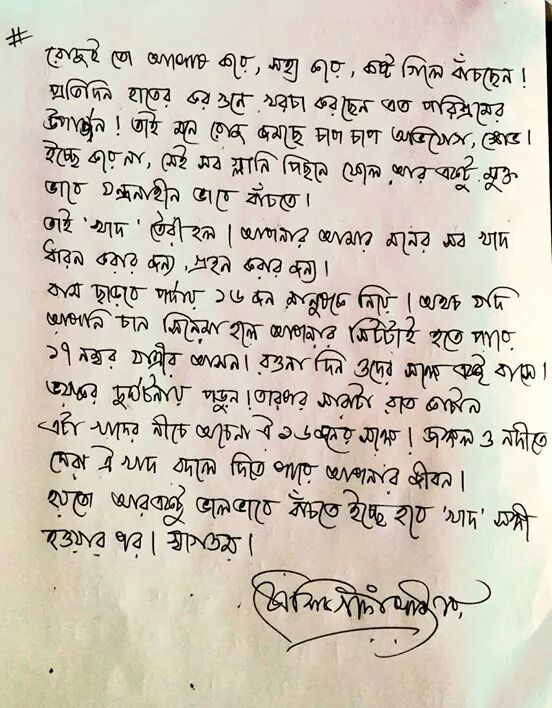 #
রোজই তো আপোষ করে, সহ্য করে, কষ্ট গিলে বাঁচছেন!
প্রতিদিন হাতের কর গুনে খরচা করছেন এত পরিশ্রমের
উপার্জন! তাই মনে রোজ জমছে চাপ চাপ অভিযোগ, ক্ষোভ।
ইচ্ছে করে না, সেই সব গ্লানি পিছনে ফেলে আর একটু মুক্ত
ভাবে যন্ত্রনাহীন ভাবে বাঁচতে।
তাই 'খাদ' তৈরী হল। আপনার আমার মনের সব খাদ
ধারন করার জন্য, গ্রহন করার জন্য।
বাস ছাড়বে পর্দায় ১৬ জন মানুষকে নিয়ে। অথচ যদি
আপনি চান সিনেমা হলে আপনার সিটটাই হতে পারে
১৭ নম্বর যাত্রীর আসন। রওনা দিন ওদের সঙ্গে একই বাসে।
ভয়ঙ্কর দুর্ঘটনায় পড়ুন। তারপর সারাটা রাত কাটান
এটা খাদের নীচে অচেনা ঐ ১৬ জনের সঙ্গে। জঙ্গল ও নদীতে
ঘেরা ঐ খাদ বদলে দিতে পারে আপনার জীবন।
হয়তো আর একটু ভালভাবে বাঁচতে ইচ্ছে হবে 'খাদ' সঙ্গী
হওয়ার পর। স্বাগতম।